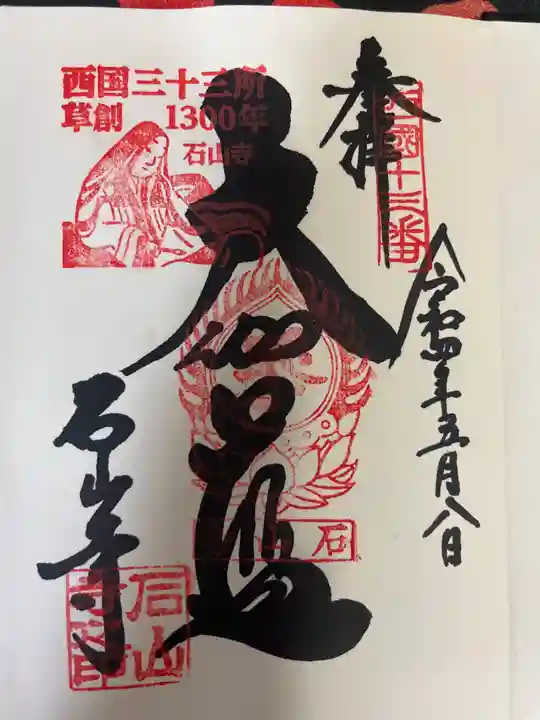 奉拝
西国十三番
令和四年五月八日
西国三十三所
草創 1300年
石山寺
大伽藍
石山寺
石山寺印